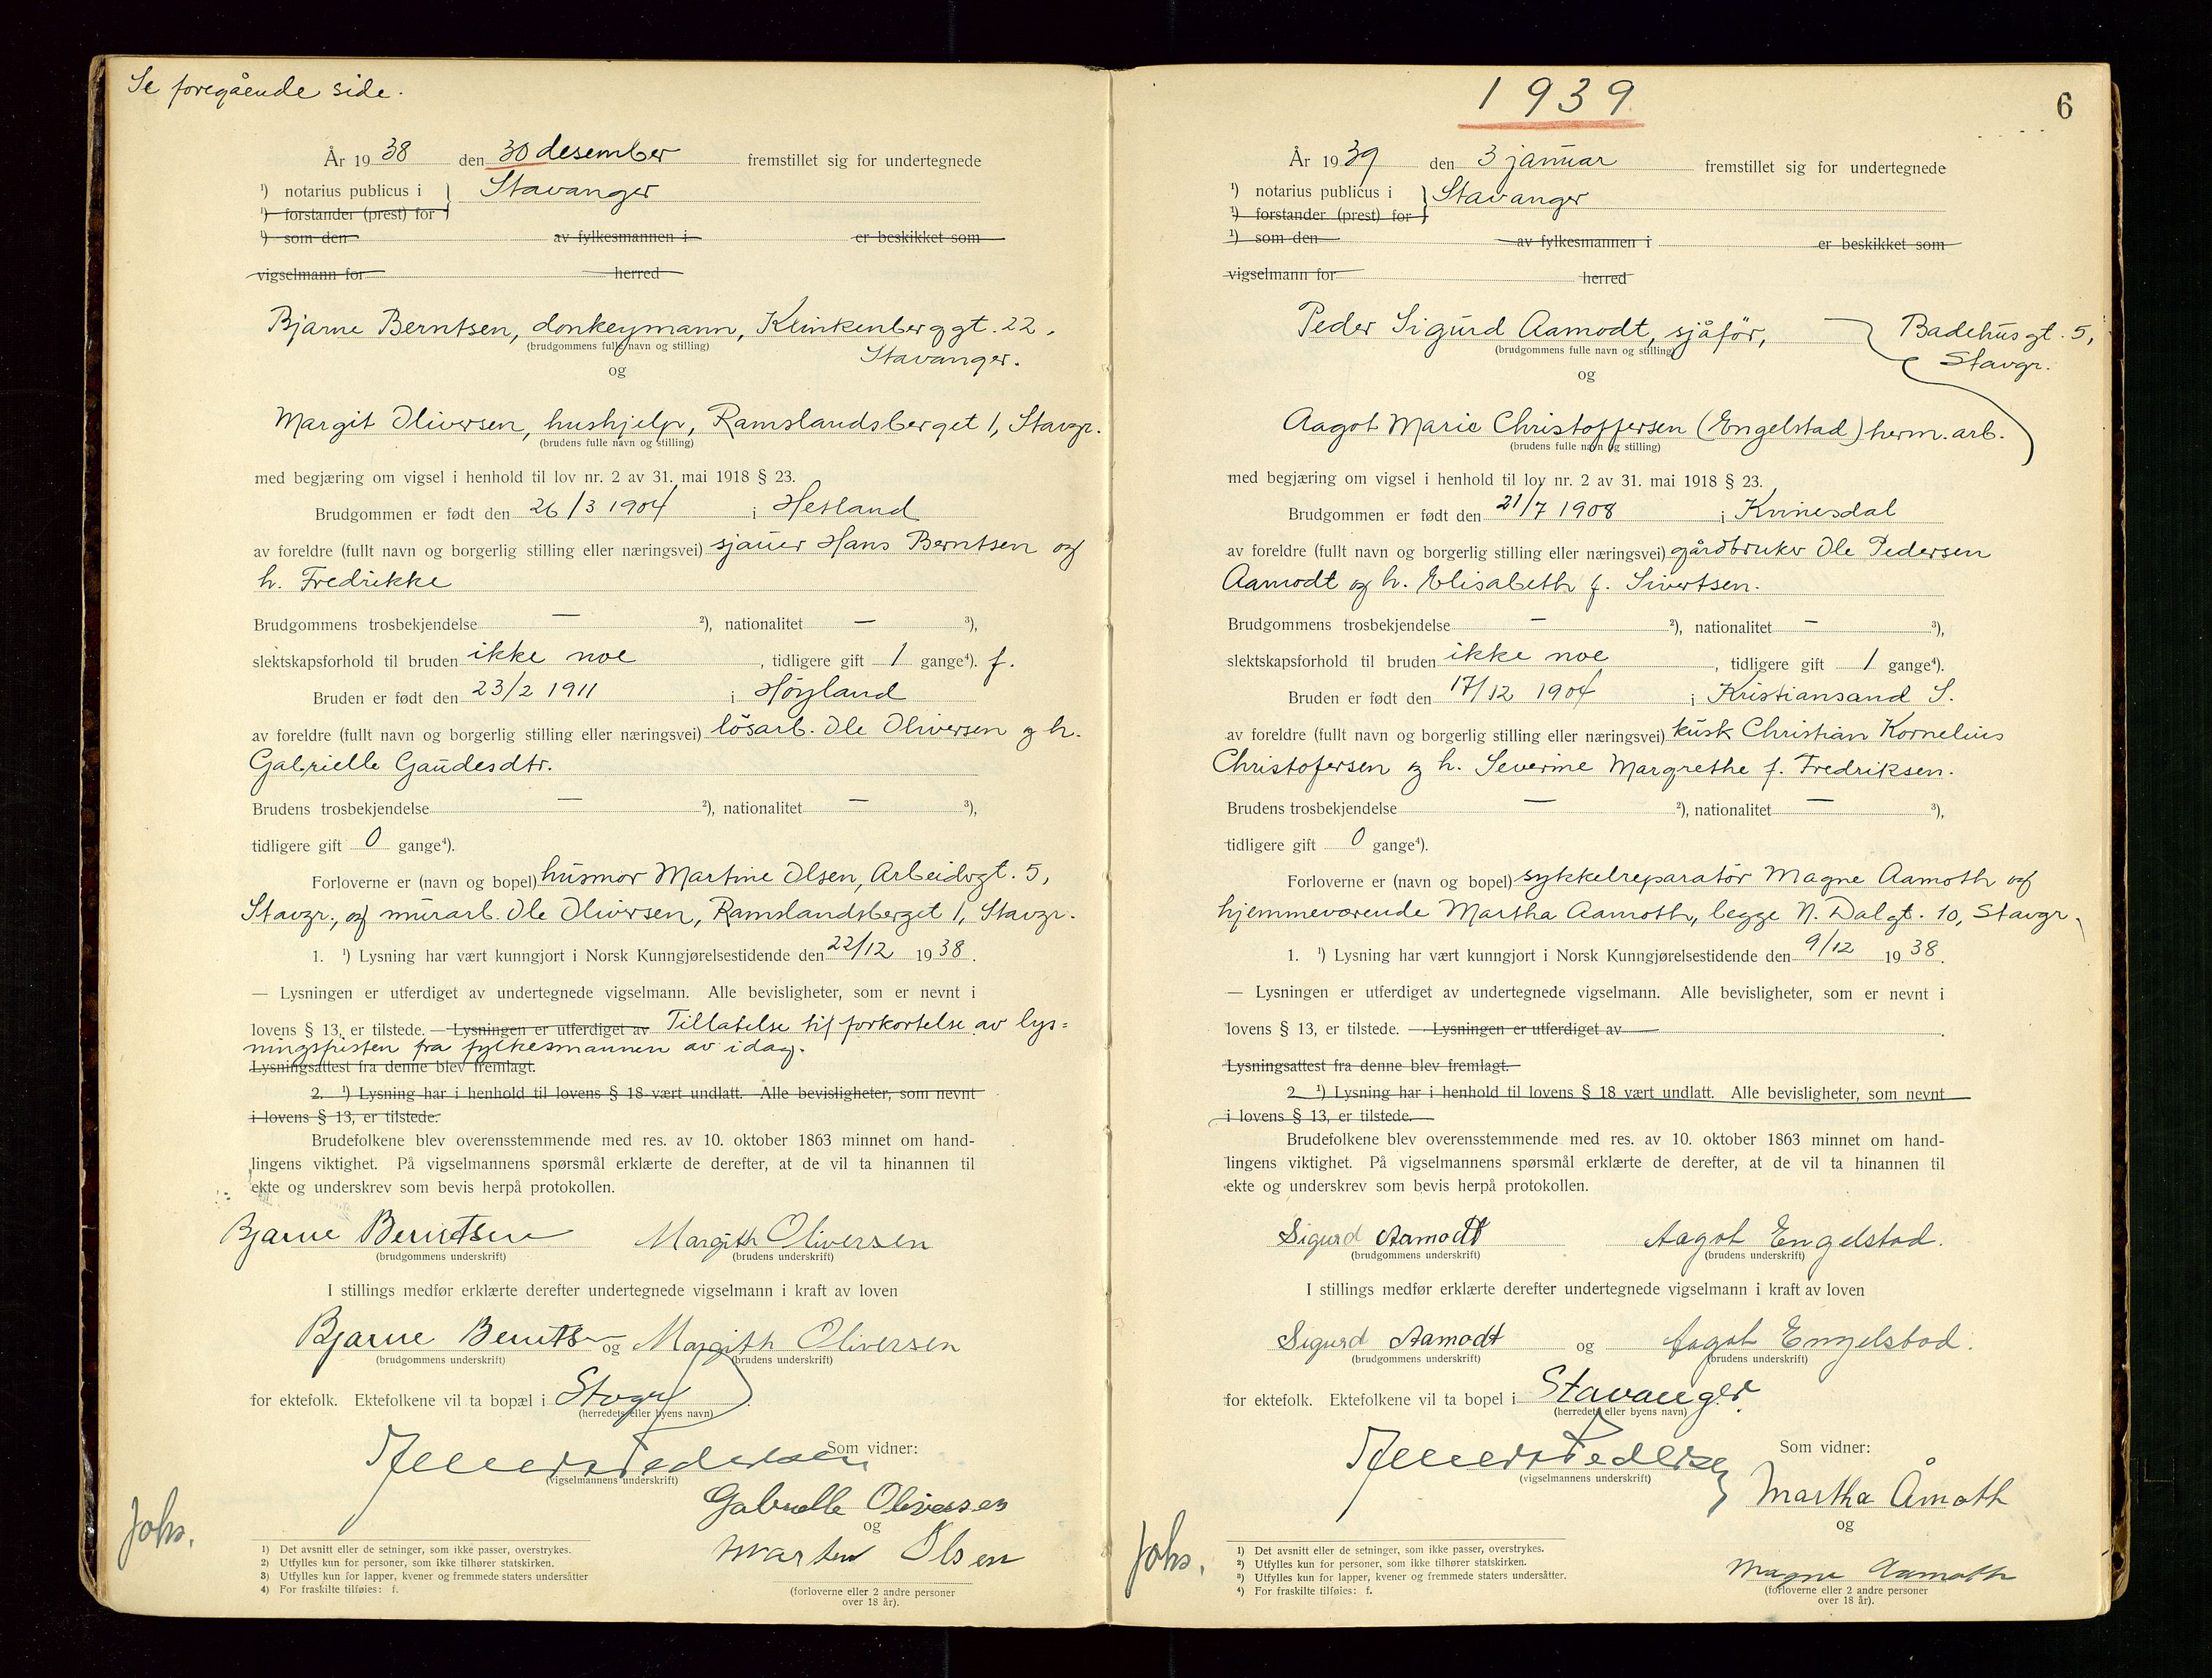 Se foregående side.
År 19 38 den 30 desember fremstillet sig for undertegnede
¹) notarius publicus i } Stavanger
¹) forstander (prest) for
¹) som den av fylkesmannen i er beskikket som
vigselmann for herred
Bjarne Berntsen, donkeymann, Klinkenberggt. 22,
(brudgommens fulle navn og stilling)
Stavanger.
og
Margit Oliversen, hushjelp, Ramslandsberget 1, Stavgr.
(brudens fulle navn og stilling)
med begjæring om vigsel i henhold til lov nr. 2 av 31. mai 1918 § 23.
Brudgommen er født den 26/3 1904 i Hetland
av foreldre (fullt navn og borgerlig stilling eller næringsvei) sjauer Hans Berntsen og
h. Fredrikke
Brudgommens trosbekjendelse — ²), nationalitet — ³),
slektskapsforhold til bruden ikke noe, tidligere gift 1 gange⁴). f.
Bruden er født den 23/2 1911 i Høyland
av foreldre (fullt navn og borgerlig stilling eller næringsvei) lösarb. Ole Oliversen og h.
Gabrielle Gaudesdtr.
Brudens trosbekjendelse — ²), nationalitet — ³),
tidligere gift 0 gange⁴).
Forloverne er (navn og bopel) husmor Martine Olsen, Arbeidergt. 5,
Stavgr., og murarb. Ole Oliversen, Ramslandsberget 1, Stavgr.
1. ¹) Lysning har vært kunngjort i Norsk Kunngjørelsestidende den 22/12 19 38.
— Lysningen er utferdiget av undertegnede vigselmann. Alle bevisligheter, som er nevnt i
lovens § 13, er tilstede. — Lysningen er utferdiget av Tillatelse til forkortelse av lys=
ningsfristen fra fylkesmannen av idag.
Lysningsattest fra denne blev fremlagt.
2. ¹) Lysning har i henhold til lovens § 18 vært undlatt. Alle bevisligheter, som nevnt
i lovens § 13, er tilstede.
Brudefolkene blev overensstemmende med res. av 10. oktober 1863 minnet om hand-
lingens viktighet. På vigselmannens spørsmål erklærte de derefter, at de vil ta hinannen til
ekte og underskrev som bevis herpå protokollen.
Bjarne Berntsen Margith Oliversen
(brudgommens underskrift) (brudens underskrift)
I stillings medfør erklærte derefter undertegnede vigselmann i kraft av loven
Bjarne Berntsen og Margith Oliversen
(brudgommens underskrift) (brudens underskrift)
for ektefolk. Ektefolkene vil ta bopæl i Stvgr
(herredets eller byens navn)
Som vidner:
(vigselmannens underskrift)
Gabrielle Oliversen
og
Martine Olsen
(forloverne eller 2 andre personer
over 18 år).
Johs.
1) Det avsnitt eller de setninger, som ikke passer, overstrykes.
2) Utfylles kun for personer, som ikke tilhører statskirken.
3) Utfylles kun for lapper, kvener og fremmede staters undersåtter
4) For fraskilte tilføies: f.
1939
6
År 19 39 den 3 januar fremstillet sig for undertegnede
¹) notarius publicus i } Stavanger
¹) forstander (prest) for
¹) som den av fylkesmannen i er beskikket som
vigselmann for herred
Peder Sigurd Aamodt, sjåför, Badehusgt. 5,
(brudgommens fulle navn og stilling)
Stavgr.
og
Aagot Marie Christoffersen (Engelstad) herm. arb.
(brudens fulle navn og stilling)
med begjæring om vigsel i henhold til lov nr. 2 av 31. mai 1918 § 23.
Brudgommen er født den 21/7 1908 i Kvinesdal
av foreldre (fullt navn og borgerlig stilling eller næringsvei) gårdbruker Ole Pedersen
Aamodt og h. Elisabeth f. Sivertsen.
Brudgommens trosbekjendelse — ²), nationalitet — ³),
slektskapsforhold til bruden ikke noe, tidligere gift 1 gange⁴).
Bruden er født den 17/12 1904 i Kristiansand S.
av foreldre (fullt navn og borgerlig stilling eller næringsvei) kusk Christian Kornelius
Christofersen og h. Severine Margrethe f. Fredriksen.
Brudens trosbekjendelse — ²), nationalitet — ³),
tidligere gift 0 gange⁴).
Forloverne er (navn og bopel) sykkelreparatör Magne Aamoth og
hjemmeværende Martha Aamoth, begge N. Dalgt. 10, Stavgr.
1. ¹) Lysning har vært kunngjort i Norsk Kunngjørelsestidende den 9/12 19 38.
— Lysningen er utferdiget av undertegnede vigselmann. Alle bevisligheter, som er nevnt i
lovens § 13, er tilstede. — Lysningen er utferdiget av
Lysningsattest fra denne blev fremlagt.
2. ¹) Lysning har i henhold til lovens § 18 vært undlatt. Alle bevisligheter, som nevnt
i lovens § 13, er tilstede.
Brudefolkene blev overensstemmende med res. av 10. oktober 1863 minnet om hand-
lingens viktighet. På vigselmannens spørsmål erklærte de derefter, at de vil ta hinannen til
ekte og underskrev som bevis herpå protokollen.
Sigurd Aamodt Aagot Engelstad.
(brudgommens underskrift) (brudens underskrift)
I stillings medfør erklærte derefter undertegnede vigselmann i kraft av loven
Sigurd Aamodt og Aagot Engelstad.
(brudgommens underskrift) (brudens underskrift)
for ektefolk. Ektefolkene vil ta bopel i Stavanger
(herredets eller byens navn)
Som vidner:
(vigselmannens underskrift)
Martha Åmoth
og
Magne Aamoth
(forloverne eller 2 andre personer
over 18 år).
Johs.
1) Det avsnitt eller de setninger, som ikke passer, overstrykes.
2) Utfylles kun for personer, som ikke tilhører statskirken.
3) Utfylles kun for lapper, kvener og fremmede staters undersåtter.
4) For fraskilte tilføies: f.